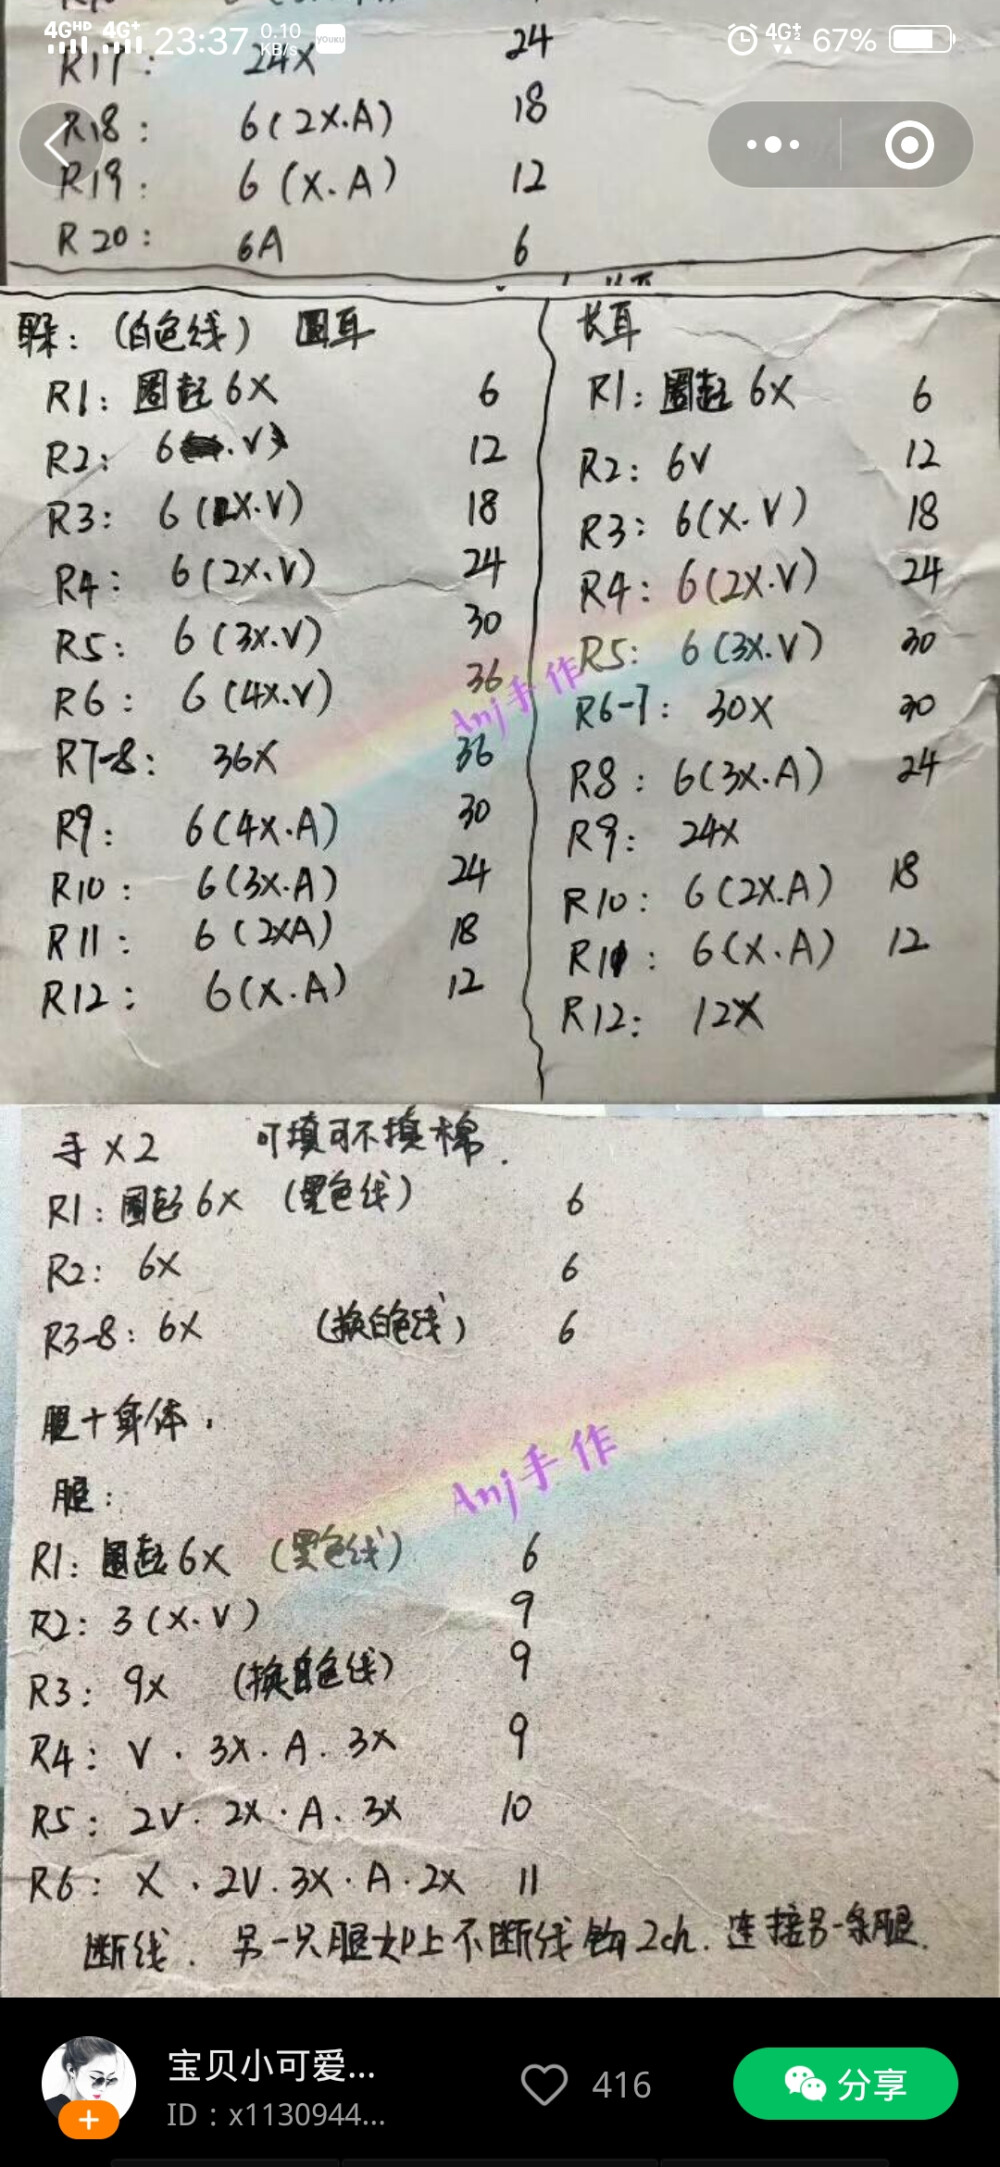 4GHD 4G+ 23:37 0.10 KB/s YOUKU 4G+ 67%
R17: 24X 24
R18: 6(2X.A) 18
R19: 6(X.A) 12
R20: 6A 6
(白色线) 圆耳
R1: 圈起6X 6
R2: 6 .V) 12
R3: 6(X.V) 18
R4: 6(2X.V) 24
R5: 6(3X.V) 30
R6: 6(4X.V) 36
R7-8: 36X 36
R9: 6(4X.A) 30
R10: 6(3X.A) 24
R11: 6(2XA) 18
R12: 6(X.A) 12
长耳
R1: 圈起6X 6
R2: 6V 12
R3: 6(X.V) 18
R4: 6(2X.V) 24
R5: 6(3X.V) 30
R6-7: 30X 30
R8: 6(3X.A) 24
R9: 24X
R10: 6(2X.A) 18
R11: 6(X.A) 12
R12: 12X
Anj手作
手X2 可填可不填棉.
R1: 圈起6X (黑色线) 6
R2: 6X 6
R3-8: 6X (换白色线) 6
腿+身体.
腿:
R1: 圈起6X (黑色线) 6
R2: 3(X.V) 9
R3: 9X (换白色线) 9
R4: V.3X.A.3X 9
R5: 2V.2X.A.3X 10
R6: X.2V.3X.A.2X 11
断线. 另一只腿如上不断线钩2ch. 连接另一条腿.
Anj手作
宝贝小可爱...
ID：x1130944...
416
分享